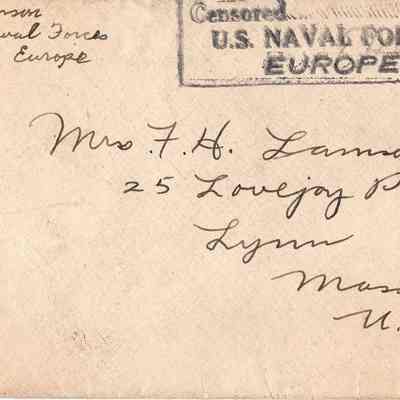 nson
val Forces
Europe
Censored
U.S. NAVAL FOR
EUROPE
Mrs. F. H. Lamso
25 Lovejoy P
Lynn
Mass
U.